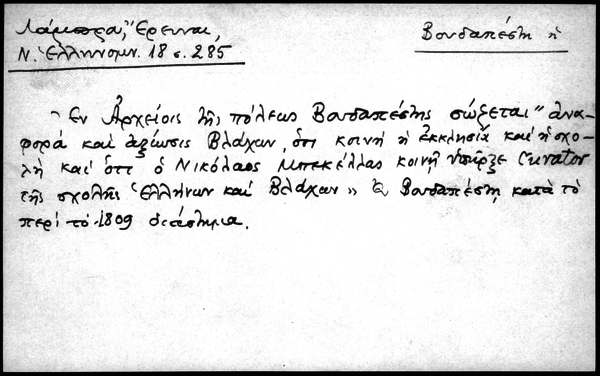 Λάμπρα, Ἔρευναι,
Ν. Ἑλληνομν. 18 σ. 285
Βουδαπέστη ἡ
Ἐν Ἀρχείοις τῆς πόλεως Βουδαπέστης σώζεται "ἀνα-
φορὰ καὶ ἀξίωσις Βλάχων, ὅτι κοινὴ ἡ ἐκκλησία καὶ ἡ σχο-
λὴ καὶ ὅτι ὁ Νικόλαος Μπεκέλλας κοινῇ ὑπῆρξε Curator
τῆς σχολῆς Ἑλλήνων καὶ Βλάχων» ἐν Βουδαπέστῃ κατὰ τὸ
περὶ τὸ 1809 διάστημα.